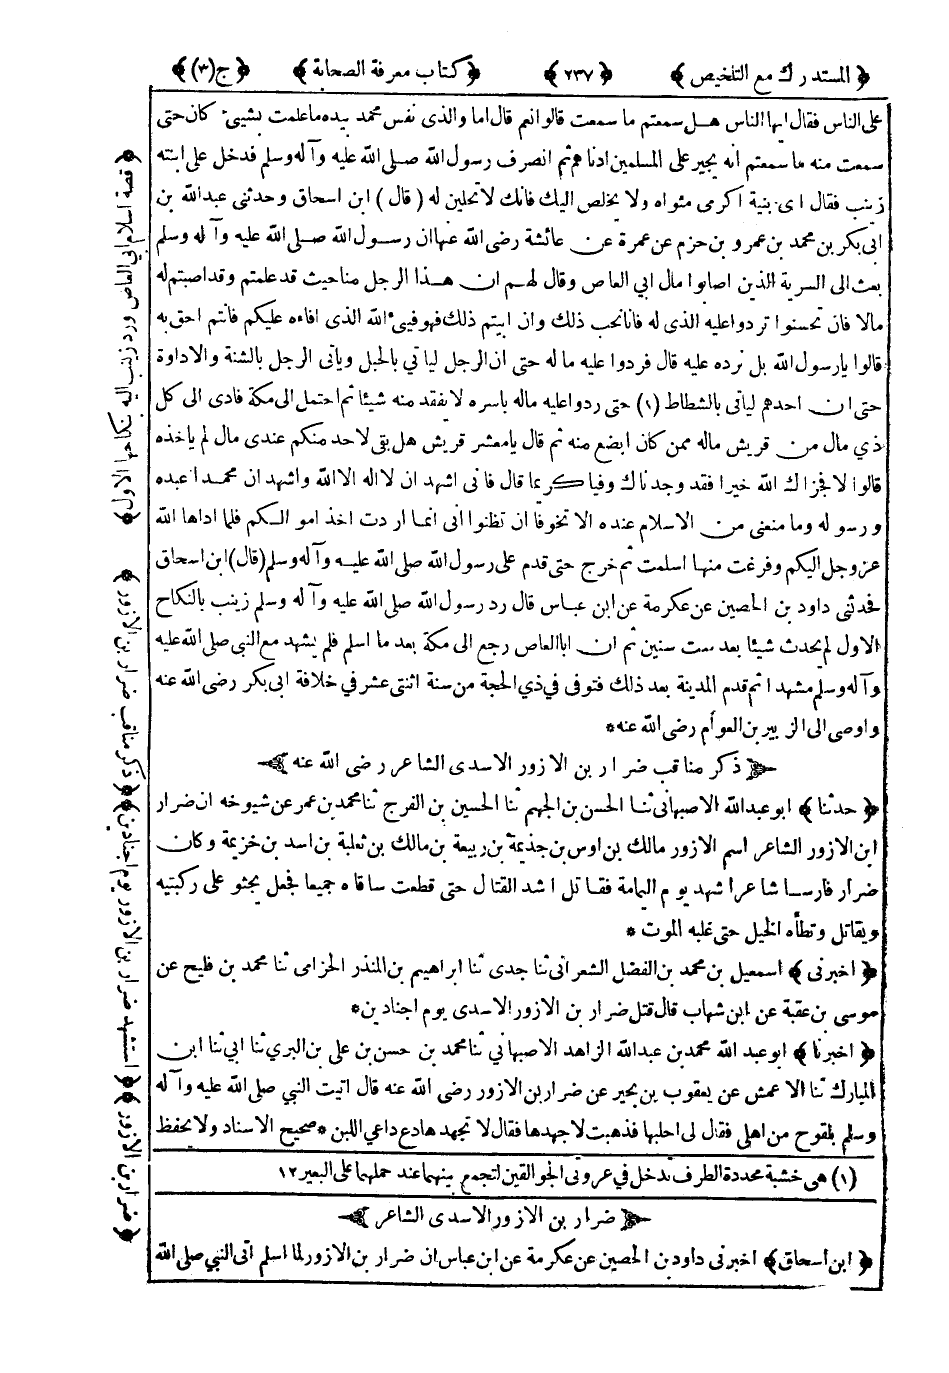 ﴿ المستدرك مع التلخيص ﴾ ﴿ ٢٣٧ ﴾ ﴿ كتاب معرفة الصحابة ﴾ ﴿ ج (٣) ﴾
على الناس فقال ايها الناس هل سمعتم ما سمعت قالوا نعم قال اما والذى نفس محمد بيده ما علمت بشيئ كان حتى
سمعت منه ما سمعتم انه يجير على المسلمين ادناهم ثم انصرف رسول الله صلى الله عليه وآله وسلم فدخل على ابنته
زينب فقال اى بنية اكرمى مثواه ولا يخلص اليك فانك لا تحلين له ( قال ) ابن اسحاق وحدثنى عبدالله بن
ابى بكر بن محمد بن عمرو بن حزم عن عمرة عن عائشة رضى الله عنها ان رسول الله صلى الله عليه وآله وسلم
بعث الى السرية الذين اصابوا مال ابي العاص وقال لهم ان هذا الرجل منا حيث قد علمتم وقد اصبتم له
مالا فان تحسنوا تردوا عليه الذى له فانا نحب ذلك وان ابيتم ذلك فهو فيئ الله الذى افاءه عليكم فانتم احق به
قالوا يا رسول الله بل نرده عليه قال فردوا عليه ما له حتى ان الرجل ليأتي بالحبل ويأتى الرجل بالشنة والاداوة
حتى ان احدهم ليأتى بالشطاط (١) حتى ردوا عليه ماله باسره لا يفقد منه شيئا ثم احتمل الى مكة فادى الى كل
ذي مال من قريش ماله ممن كان ابضع منه ثم قال يا معشر قريش هل بقى لاحد منكم عندى مال لم يأخذه
قالوا لا فجزاك الله خيرا فقد وجدناك وفيا كريما قال فانى اشهد ان لا اله الا الله واشهد ان محمدا عبده
ورسوله وما منعنى من الاسلام عنده الا تخوفا ان تظنوا انى انما اردت اخذ اموالكم فلما اداها الله
عزوجل اليكم وفرغت منها اسلمت ثم خرج حتى قدم على رسول الله صلى الله عليه وآله وسلم (قال) ابن اسحاق
فحدثنى داود بن الحصين عن عكرمة عن ابن عباس قال رد رسول الله صلى الله عليه وآله وسلم زينب بالنكاح
الاول لم يحدث شيئا بعد ست سنين ثم ان ابا العاص رجع الى مكة بعد ما اسلم فلم يشهد مع النبى صلى الله عليه
وآله وسلم مشهدا ثم قدم المدينة بعد ذلك فتوفى في ذي الحجة من سنة اثنتى عشر في خلافة ابى بكر رضى الله عنه
واوصى الى الزبير بن العوأم رضى الله عنه*
ذكر مناقب ضرار بن الازور الاسدى الشاعر رضى الله عنه
﴿ حدثنا ﴾ ابو عبدالله الاصبهانى ثنا الحسن بن الجهم ثنا الحسين بن الفرج ثنا محمد بن عمر عن شيوخه ان ضرار
ابن الازور الشاعر اسم الازور مالك بن اوس بن جذيمة بن ربيعة بن مالك بن ثعلبة بن اسد بن خزيمة وكان
ضرار فارسا شاعرا شهد يوم اليمامة فقاتل اشد القتال حتى قطعت ساقاه جميعا فجعل يجثو على ركبتيه
ويقاتل وتطأه الخيل حتى غلبه الموت *
﴿ اخبرنى ﴾ اسمعيل بن محمد بن الفضل الشعرانى ثنا جدى ثنا ابراهيم بن المنذر الحزامى ثنا محمد بن فليح عن
موسى بن عقبة عن ابن شهاب قال قتل ضرار بن الازور الاسدى يوم اجنادين*
﴿ اخبرنا ﴾ ابو عبد الله محمد بن عبدالله الزاهد الاصبهاني ثنا محمد بن حسن بن على بن البري ثنا ابي ثنا ابن
المبارك ثنا الاعمش عن يعقوب بن بجير عن ضرار بن الازور رضى الله عنه قال اتيت النبي صلى الله عليه وآله
وسلم بلقوح من اهلى فقال لى احلبها فذهبت لاجهدها فقال لا تجهدها دع داعي اللبن * صحيح الاسناد ولا يحفظ
(١) هى خشبة محددة الطرف تدخل في عروتى الجوالقين لتجمع بينهما عند حملهما على البعير ١٢
ضرار بن الازور الاسدى الشاعر
﴿ ابن اسحاق ﴾ اخبرنى داود بن الحصين عن عكرمة عن ابن عباس ان ضرار بن الازور لما اسلم اتى النبي صلى الله
﴿ قصة اسلام ابي العاص ورد زينب اليه بنكاحها الاول ﴾
﴿ ذكر مناقب ضرار بن الازور ﴾
﴿ استشهد ضرار بن الازور يوم اجنادين ﴾
﴿ ضرار بن الازور ﴾